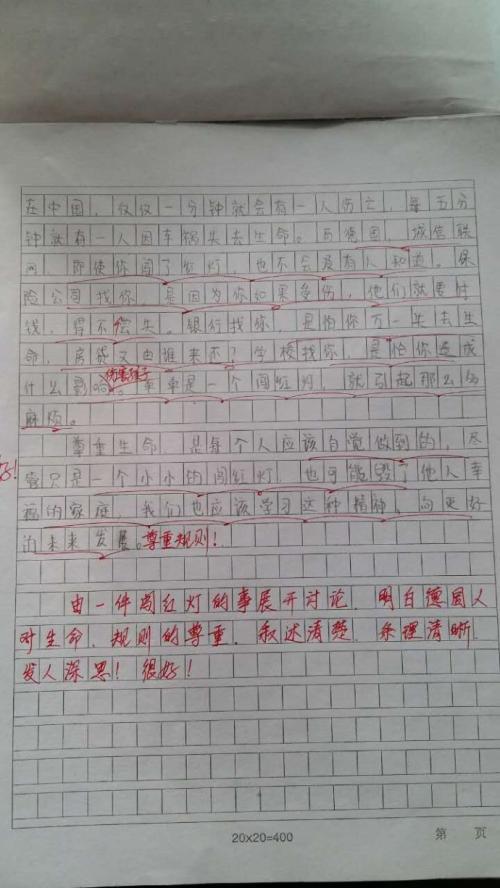 在中国，仅仅一分钟就会有一人伤亡，每五分
钟就有一人因车祸失去生命。而德国，诚信联
网，即使你闯了红灯，也不会没有人知道。保
险公司找你，是因为你如果受伤，他们就要付
钱，得不偿失。银行找你，是怕你万一失去生
命，房贷又由谁来还？学校找你，是怕你造成
伤害孩子
什么影响。单单是一个闯红灯，就引起那么多
麻烦。
尊重生命，是每个人应该自觉做到的，尽
好！
管只是一个小小的闯红灯，也可能毁了他人幸
福的家庭，我们也应该学习这种精神，向更好
的未来发展。尊重规则！
由一件闯红灯的事展开讨论，明白德国人
对生命、规则的尊重，叙述清楚，条理清晰，
发人深思！很好！
20×20=400
第 页